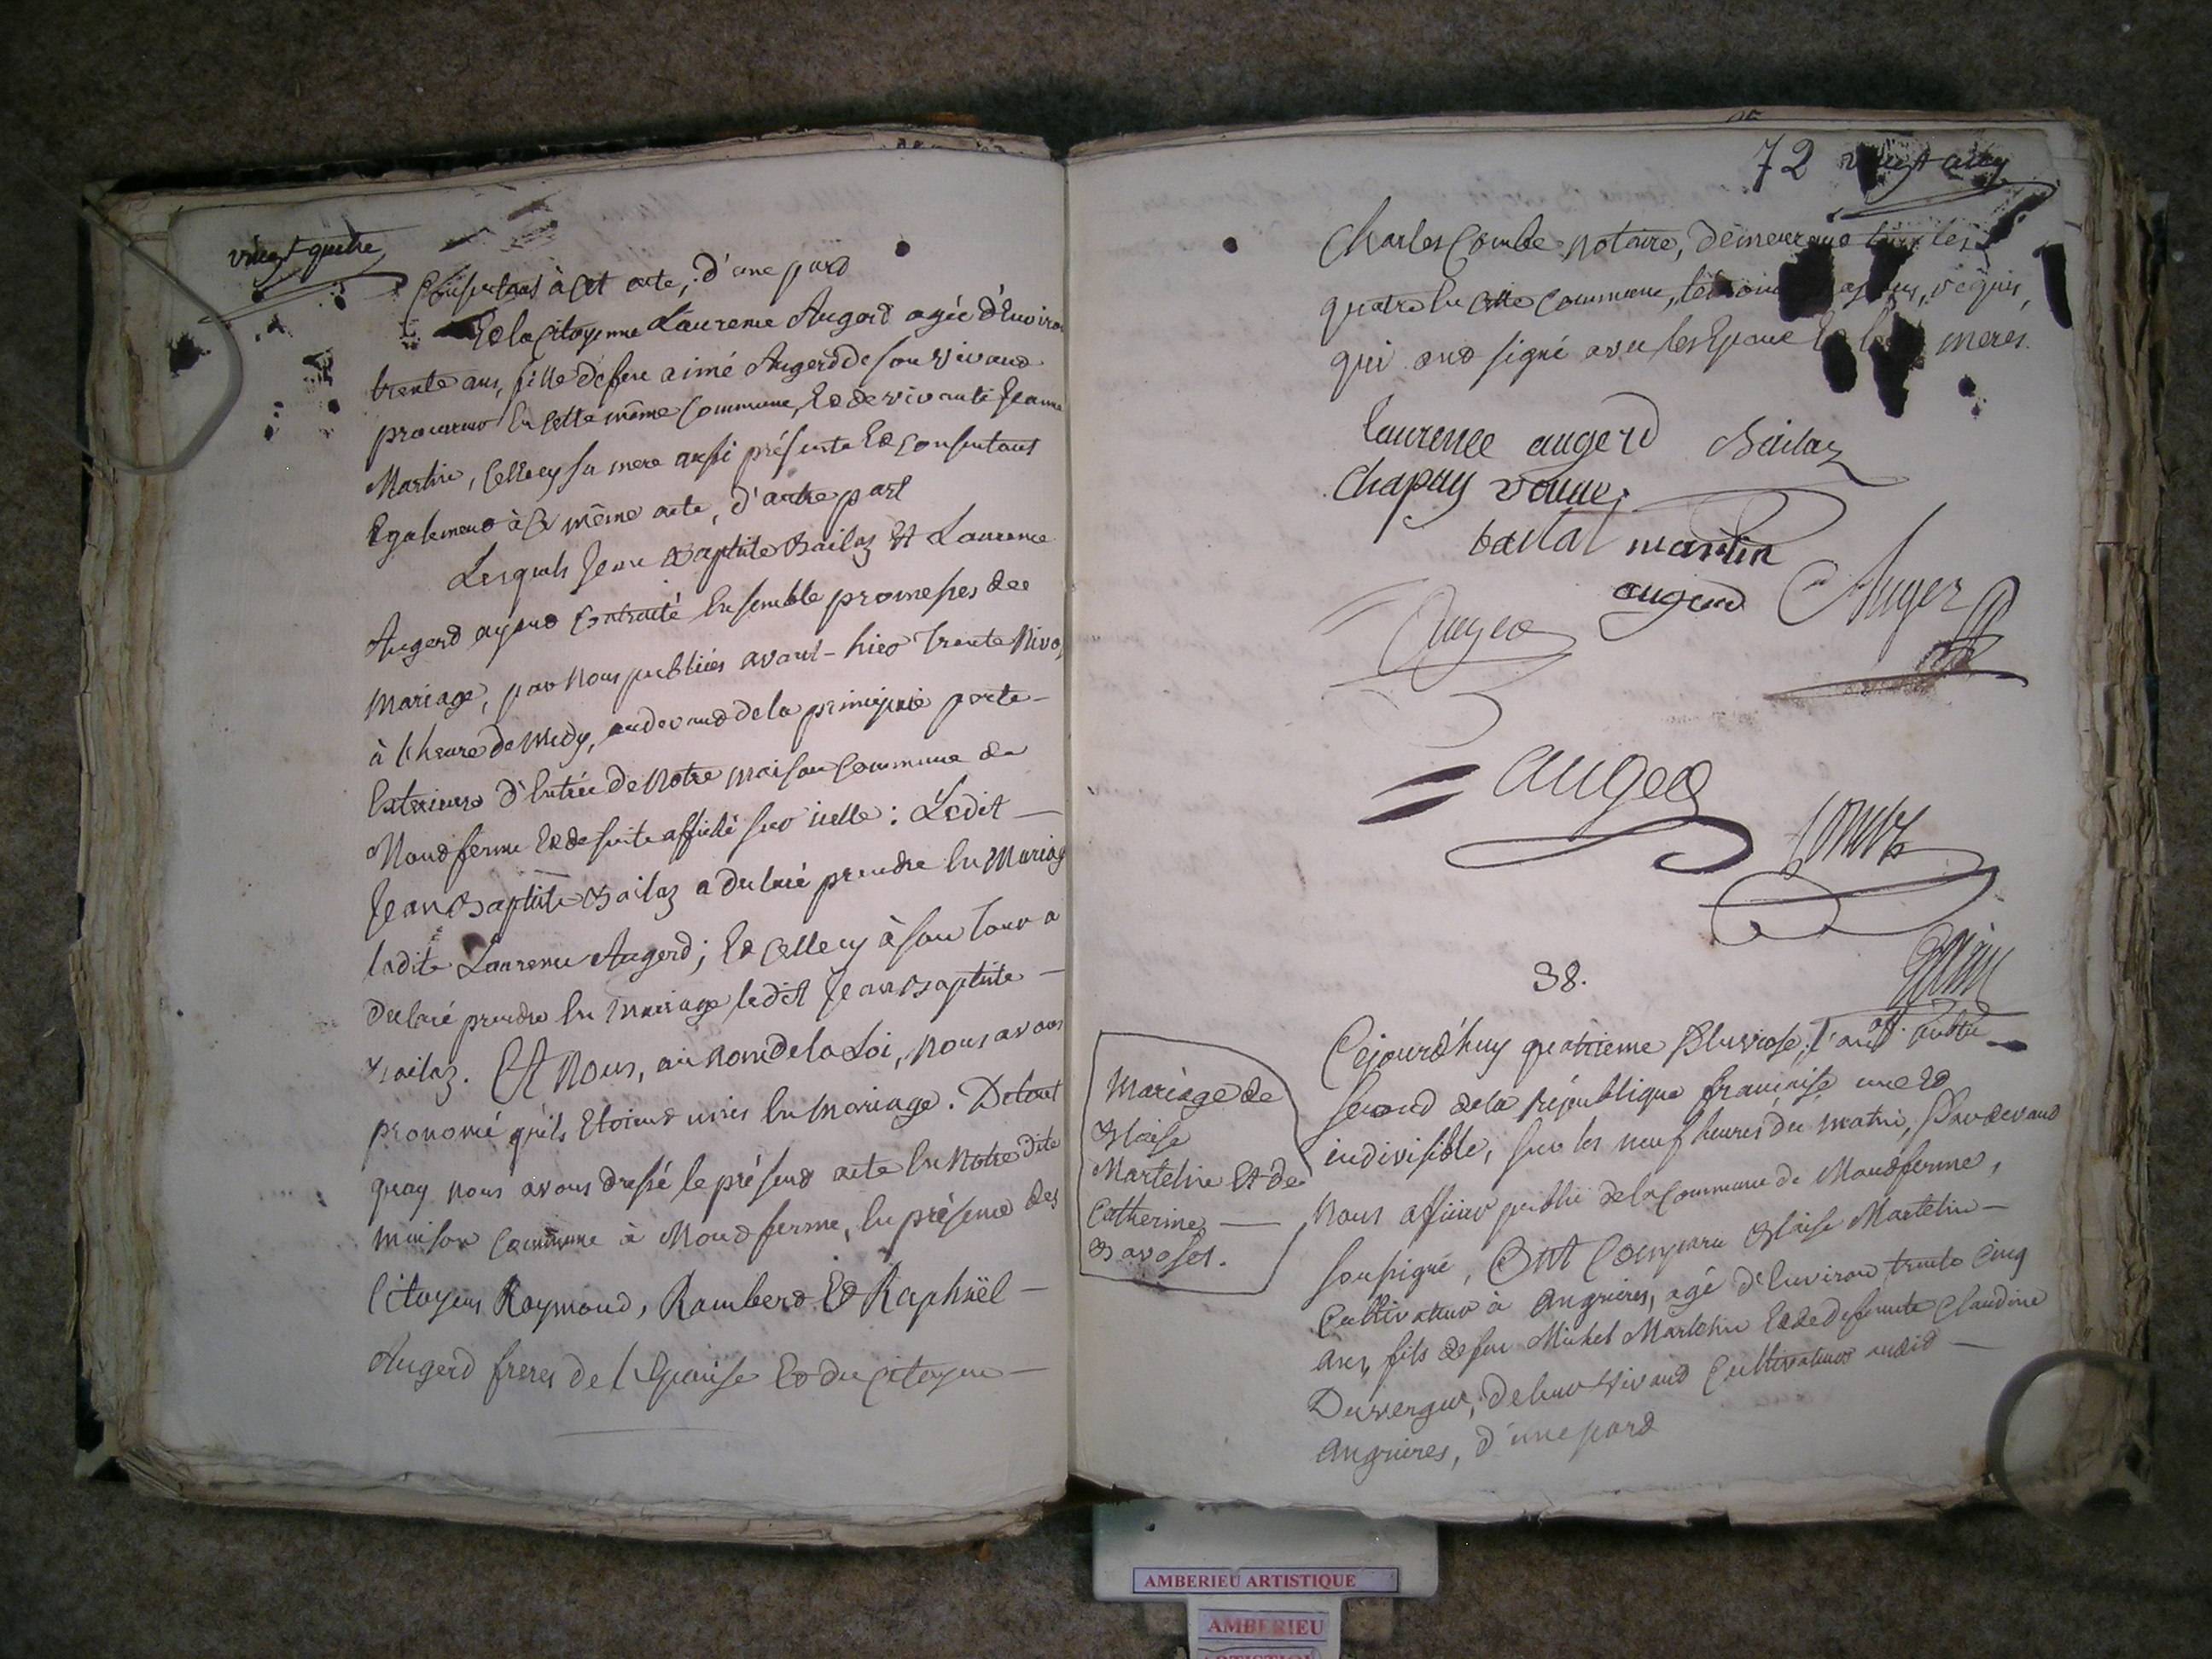 vingt quatre
Consentans à cet acte, d'une part
Et la Citoyenne Laurence Augerd agée d'Environ
trente ans, fille defeu aimé Augerd de son vivant
procureur En cette même Commune, Et de vivante Jeanne
Martin, celle cy sa mere aussi présente Et consentant
Egalement à ce même acte, d'autre part
Lesquels Jean Baptiste Bailaz Et Laurence
Augerd ayant contracté Ensemble promesses de
Mariage, par Nous publiées avant-hier trente Nivo
à l'heure de Midy, audevant de la principale porte
Exterieure d'Entrée de Notre maison Commune de
Montferme Et de suite affiché sur icelle : Ledit
Jean Baptiste Bailaz a declaré prendre En Mariag
ladite Laurence Augerd ; Et celle cy à son tour a
declaré prendre En mariage ledit Jean Baptiste
Bailaz. Et Nous, au nom de la Loi, Nous avons
prononcé qu'ils Etoient unis En Mariage. De tout
quoy nous avons dressé le présent acte En Notre dite
maison Commune à Montferme, En présence des
Citoyens Raymond, Rambert Et Raphaël
Augerd freres de l'Epouse Et du Citoyen
72 vingt cinq
Charles Combe Notaire, demeurant tous les
quatre En cette Commune, témoins requis,
qui ont signé avec les Epoux Et meres.
laurence augerd Bailaz
Chapuy veuve
bailat martin
augerd Auger
Auged
auged
Combe
38.
off. public
Cejourd'huy quatrieme Pluviose, l'an
second de la république française une Et
indivisible, sur les neuf heures du matin, Pardevant
Nous officier public de la Commune de Montferme,
soussigné, Ont Comparu Blaise Martelin
Cultivateur à Angrieres, agé d'Environ trente cinq
ans, fils defeu Michel Martelin Et de defunte Claudine
Duverger, de leur vivant Cultivateurs audit
Angrieres, d'une part
Mariage de
Blaise
Martelin Et de
Catherine
Bavoset.
AMBERIEU ARTISTIQUE
AMBERIEU
ARTISTIQUE